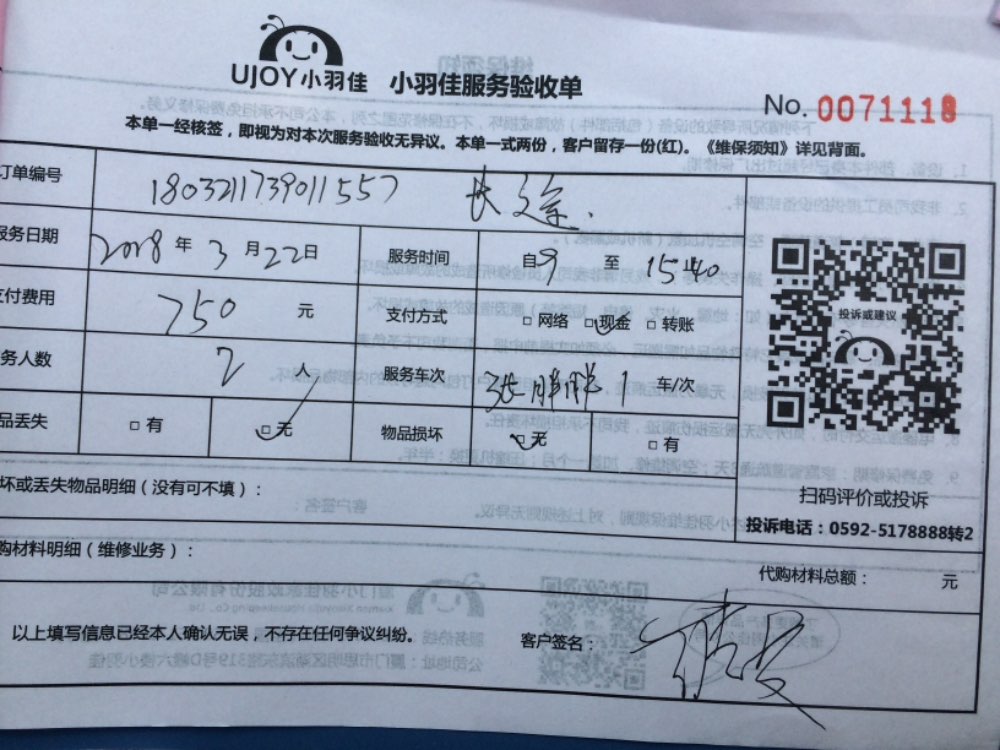 UJOY小羽佳 小羽佳服务验收单
No. 0071118
本单一经核签，即视为对本次服务验收无异议。本单一式两份，客户留存一份(红)。《维保须知》详见背面。
订单编号 180321173901557 长途.
服务日期 2018 年 3 月 22 日 服务时间 自 9 至 15:40
支付费用 750 元 支付方式 □ 网络 □ 现金 □ 转账
务人数 2 人 服务车次 1 车/次
品丢失 □ 有 □ 无 物品损坏 □ 无 □ 有
投诉或建议
扫码评价或投诉
投诉电话：0592-5178888转2
坏或丢失物品明细（没有可不填）：
购材料明细（维修业务）：
代购材料总额： 元
以上填写信息已经本人确认无误，不存在任何争议纠纷。 客户签名：